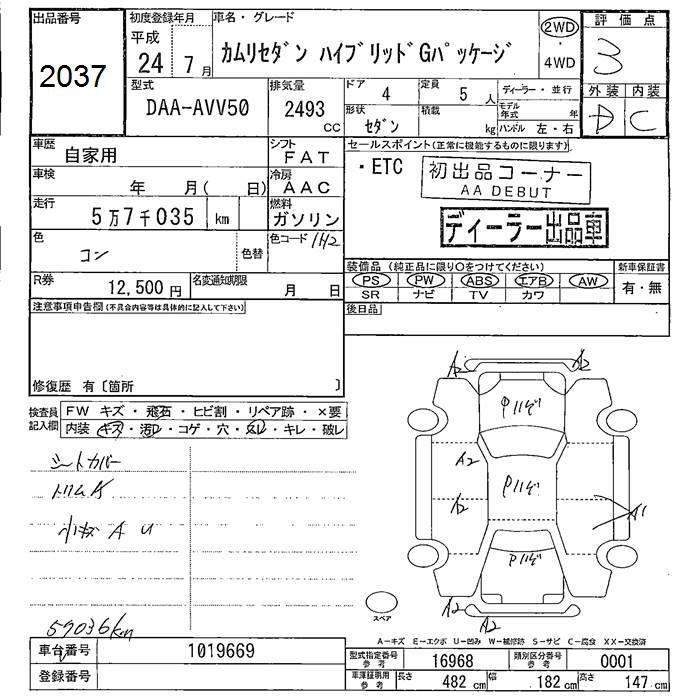 出品番号
2037
初度登録年月
平成
24 7月
車名・グレード
カムリセダン ハイブリッドGパッケージ
2WD
・
4WD
評価点
3
外装 内装
D C
型式
DAA-AVV50
排気量
2493
CC
ドア 4
定員 5 人
ディーラー・並行
形状
セダン
積載
kg
モデル年式 年
ハンドル 左・右
車歴
自家用
シフト
FAT
車検
年 月( 日)
冷房
AAC
走行
5万7千035 km
燃料
ガソリン
色
コン
色替
色コード 1H2
R券
12,500円
名変通知期限
月 日
セールスポイント(正常に機能するものに限ります)
・ETC
初出品コーナー
AA DEBUT
ディーラー出品車
装備品(純正品に限り○をつけてください)
新車保証書
PS PW ABS エアB AW
SR ナビ TV カワ
有・無
注意事項申告欄(不具合内容等は具体的に記入して下さい)
後日品
修復歴 有〔箇所 〕
検査員記入欄
FW キズ・飛石・ヒビ割・リペア跡・×要
内装 キズ・汚レ・コゲ・穴・スレ・キレ・破レ
シートカバー
トリムA
小キズ A U
57036km
A2 A2
A2
A2
A1
A2
A2
スペア
A-キズ E-エクボ U-凹み W-補修跡 S-サビ C-腐食 XX-交換済
車台番号
1019669
登録番号
型式指定番号
参考
16968
類別区分番号
参考
0001
車庫証明用
参考
長さ 482cm
幅 182cm
高さ 147cm